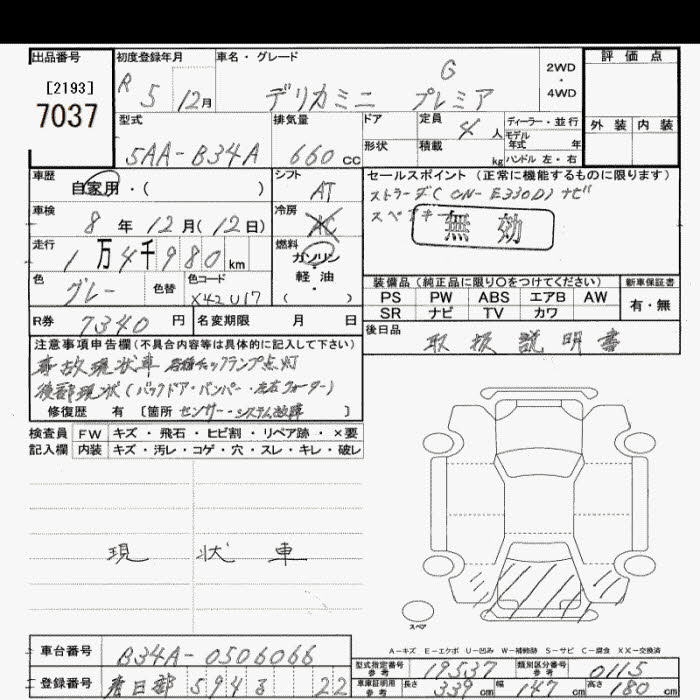 出品番号
[2193]
7037
初度登録年月
R 5 12月
車名・グレード
G
デリカミニ プレミア
2WD
・
4WD
評価点
外装 内装
型式
5AA-B34A
排気量
660 cc
ドア
形状
定員
4 人
積載
kg
ディーラー・並行
モデル
年式 年
ハンドル 左・右
車歴
自家用・( )
シフト
AT
車検
8 年 12月(12日)
冷房
AC
走行
1万4千980 km
燃料
ガソリン
軽・油
( )
色
グレー
色替
色コード
X42U17
セールスポイント(正常に機能するものに限ります)
ストラーダ(CN-E330D)ナビ
スペアキー
無効
装備品(純正品に限り○をつけてください)
PS PW ABS エアB AW
SR ナビ TV カワ
新車保証書
有・無
R券 7340 円
名変期限 月 日
後日品
取扱説明書
注意事項申告欄(不具合内容等は具体的に記入して下さい)
事故現状車 各種チェックランプ点灯
後部現状(バックドア・バンパー・左右クォーター)
修復歴 有 [箇所 センサー・システム故障 ]
検査員 FW キズ・飛石・ヒビ割・リペア跡・×要
記入欄 内装 キズ・汚レ・コゲ・穴・スレ・キレ・破レ
現状車
スペア
A-キズ E-エクボ U-凹み W-補修跡 S-サビ C-腐食 XX-交換済
車台番号 B34A-0506066
登録番号 春日部 594 22
型式指定番号
参考
19537
類別区分番号
参考
0115
車庫証明用
参考
長さ 339 cm 幅 147 cm 高さ 180 cm